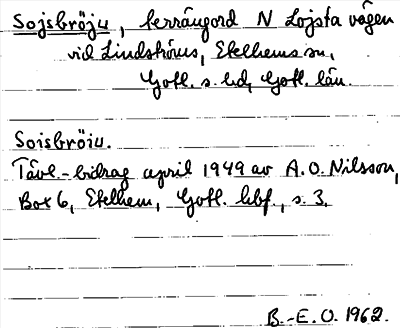 Sojsbröju, terrängord N Lojsta vägen
vid Lindshöus, Etelhems sn,
Gotl. s. hd, Gotl. län.
Soisbröiu.
Tävl.-bidrag april 1949 av A.O. Nilsson,
Box 6, Etelhem, Gotl. hbf., s. 3.
B.-E.O. 1962.